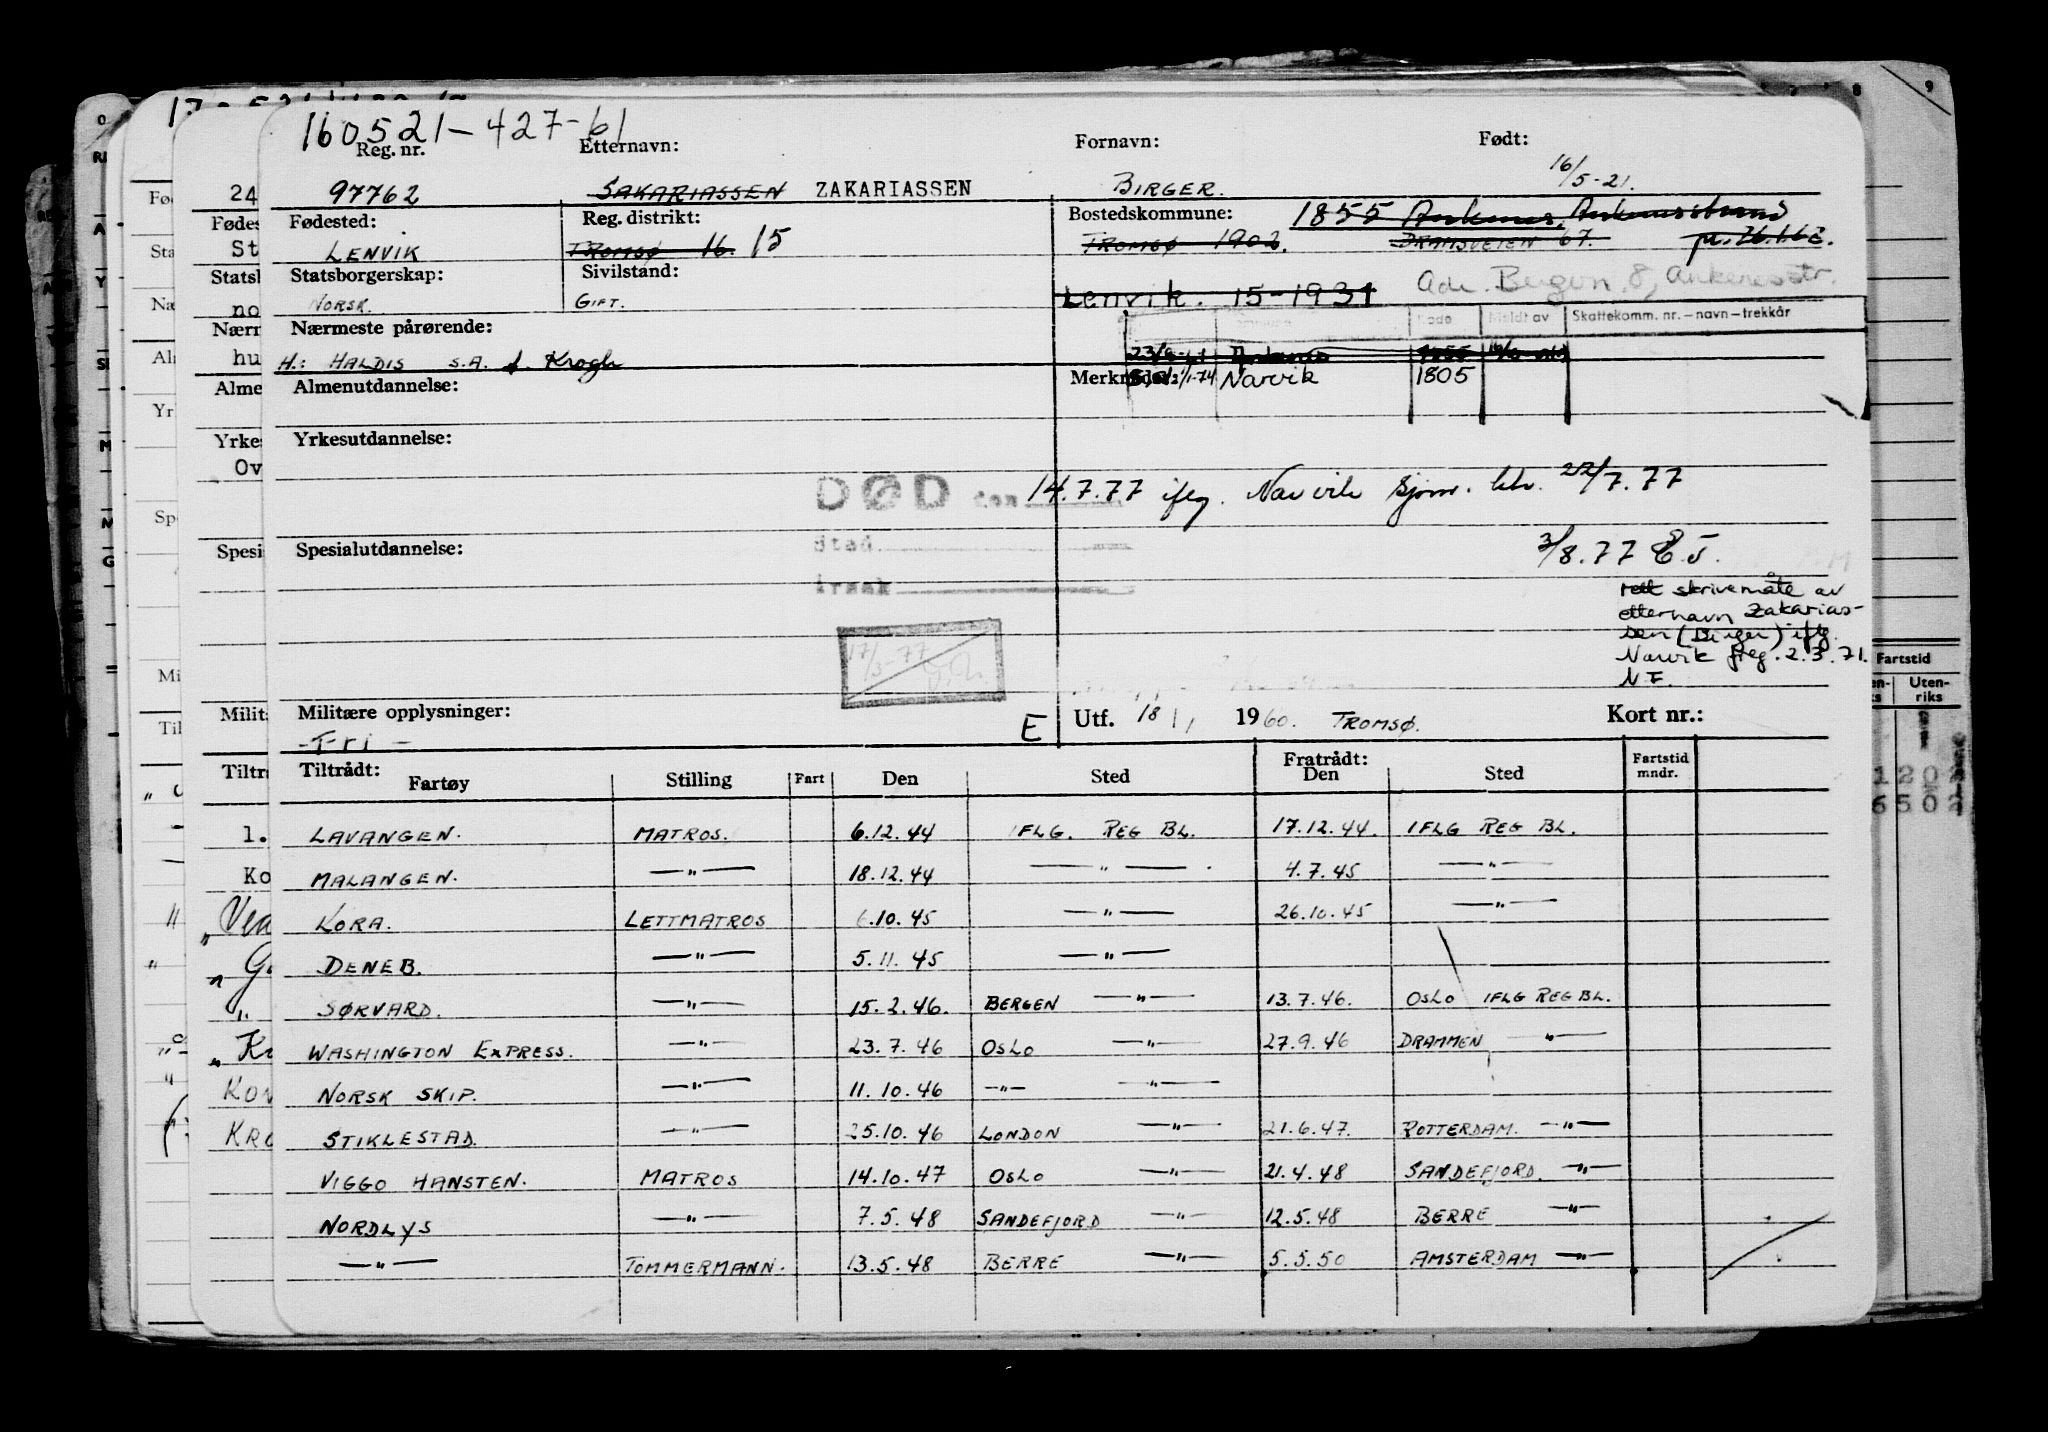 160521-427-61
Reg. nr. Etternavn: Fornavn: Født:
97762 SAKARIASSEN ZAKARIASSEN BIRGER. 16/5-21.
Fødested: Reg. distrikt: Bostedskommune: 1855 Ankenes, Ankenesstrand
LENVIK TROMSØ 16. 15 TROMSØ 1902. DRAMSVEIEN 67.
Statsborgerskap: Sivilstand: Adr. Bergvn. 8, Ankenesstr.
NORSK. GIFT. Lenvik. 15-1931
Nærmeste pårørende: Kode Meldt av Skattekomm. nr.-navn-trekkår
H.: HALDIS S.A. f. Krogh Ankenes 1855
Almenutdannelse: 1/1-74 Narvik 1805
Yrkesutdannelse:
DØD den 14.7.77 iflg. Narvik sjøm. ktr. 22/7.77
Sted
Årsak
Spesialutdannelse: 3/8.77 E.J.
rett skrivemåte av
etternavn Zakarias-
sen (Birger) iflg.
Narvik freg. 2.3.71.
N.F.
17/3-77
Militære opplysninger: E Utf. 18/1 1960. TROMSØ. Kort nr.:
-Fri-
Tiltrådt: Fratrådt:
Fartøy Stilling Fart Den Sted Den Sted Fartstid mndr.
LAVANGEN. MATROS. 6.12.44 IFLG. REG BL. 17.12.44. IFLG REG BL.
MALANGEN. —"— 18.12.44 —"— 4.7.45 —"—
KORA. LETTMATROS 6.10.45 —"— 26.10.45 —"—
DENEB. —"— 5.11.45 —"—
SØRVARD. —"— 15.2.46. BERGEN —"— 13.7.46. OSLO IFLG REG BL.
WASHINGTON EXPRESS. —"— 23.7.46 OSLO —"— 27.9.46 DRAMMEN —"—
NORSK SKIP. —"— 11.10.46 —"— —"—
STIKLESTAD. —"— 25.10.46 LONDON —"— 21.6.47. ROTTERDAM. —"—
VIGGO HANSTEN. MATROS 14.10.47 OSLO —"— 21.4.48 SANDEFJORD. —"—
NORDLYS —"— 7.5.48 SANDEFJORD —"— 12.5.48 BERRE —"—
—"— TØMMERMANN. 13.5.48 BERRE —"— 5.5.50 AMSTERDAM —"—
Fartstid
Uten-
riks